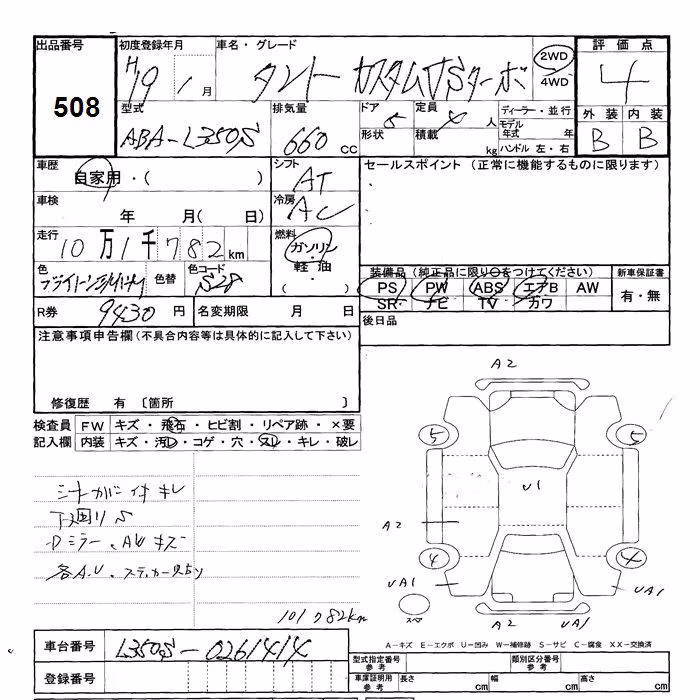 出品番号 初度登録年月 車名・グレード 2WD 4WD 評価点
508
H19 1月 タント カスタムVSターボ 4
型式 排気量 ドア 定員 ディーラー・並行 外装 内装
ABA-L350S 660cc 5 4人 モデル年式 年 B B
形状 積載 kg ハンドル 左・右
車歴 シフト セールスポイント (正常に機能するものに限ります)
自家用・( ) AT
車検 年 月( 日) 冷房 AC
走行 燃料
10万1千782km ガソリン・軽油・( )
色 色替 色コード 装備品(純正品に限り○をつけてください) 新車保証書
S28 PS PW ABS エアB AW 有・無
SR ナビ TV カワ
R券 9430円 名変期限 月 日 後日品
注意事項申告欄(不具合内容等は具体的に記入して下さい)
修復歴 有 〔箇所 〕
検査員 FW キズ・飛石・ヒビ割・リペア跡・×要
記入欄 内装 キズ・汚レ・コゲ・穴・スレ・キレ・破レ
A2
5 5
シートカバー付 キレ
U1
下廻りS
A2
Dミラー、AWキズ
4 4
UA1 UA1
スペア
A2 UA1
101782km
車台番号 L350S-0261414
A-キズ E-エクボ U-凹み W-補修跡 S-サビ C-腐食 XX-交換済
登録番号
型式指定番号 参考 類別区分番号 参考
車庫証明用 参考 長さ cm 幅 cm 高さ cm